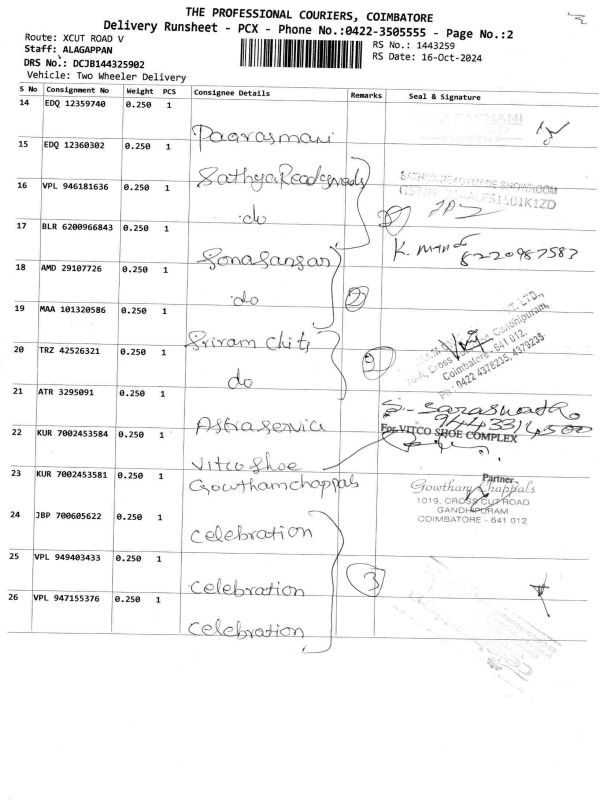 THE PROFESSIONAL COURIERS, COIMBATORE
Delivery Runsheet - PCX - Phone No.:0422-3505555 - Page No.:2
Route: XCUT ROAD V
RS No.: 1443259
Staff: ALAGAPPAN
RS Date: 16-Oct-2024
DRS No.: DCJB144325902
Vehicle: Two Wheeler Delivery
S No Consignment No Weight PCS Consignee Details Remarks Seal & Signature
14 EDQ 12359740 0.250 1 Paarasmani
15 EDQ 12360302 0.250 1 Sathya Readymade
SATHYA READYMADE SHOWROOM
16 VPL 946181636 0.250 1 do 2
17 BLR 6200966843 0.250 1 Sonasansar
8220987583
18 AMD 29107726 0.250 1 do 2
19 MAA 101320586 0.250 1 Sriram Chits
20 TRZ 42526321 0.250 1 do 2
Gandhipuram,
Coimbatore - 641 012.
PH: 0422 4378235, 4379235
21 ATR 3295091 0.250 1 Astra service
22 KUR 7002453584 0.250 1 Vitco Shoe
For VITCO SHOE COMPLEX
Partner
23 KUR 7002453581 0.250 1 Gowtham chappals
Gowtham Chappals
1019, CROSS CUT ROAD
GANDHIPURAM
COIMBATORE - 641 012
24 JBP 700605622 0.250 1 celebration
25 VPL 949403433 0.250 1 celebration 3
26 VPL 947155376 0.250 1 celebration